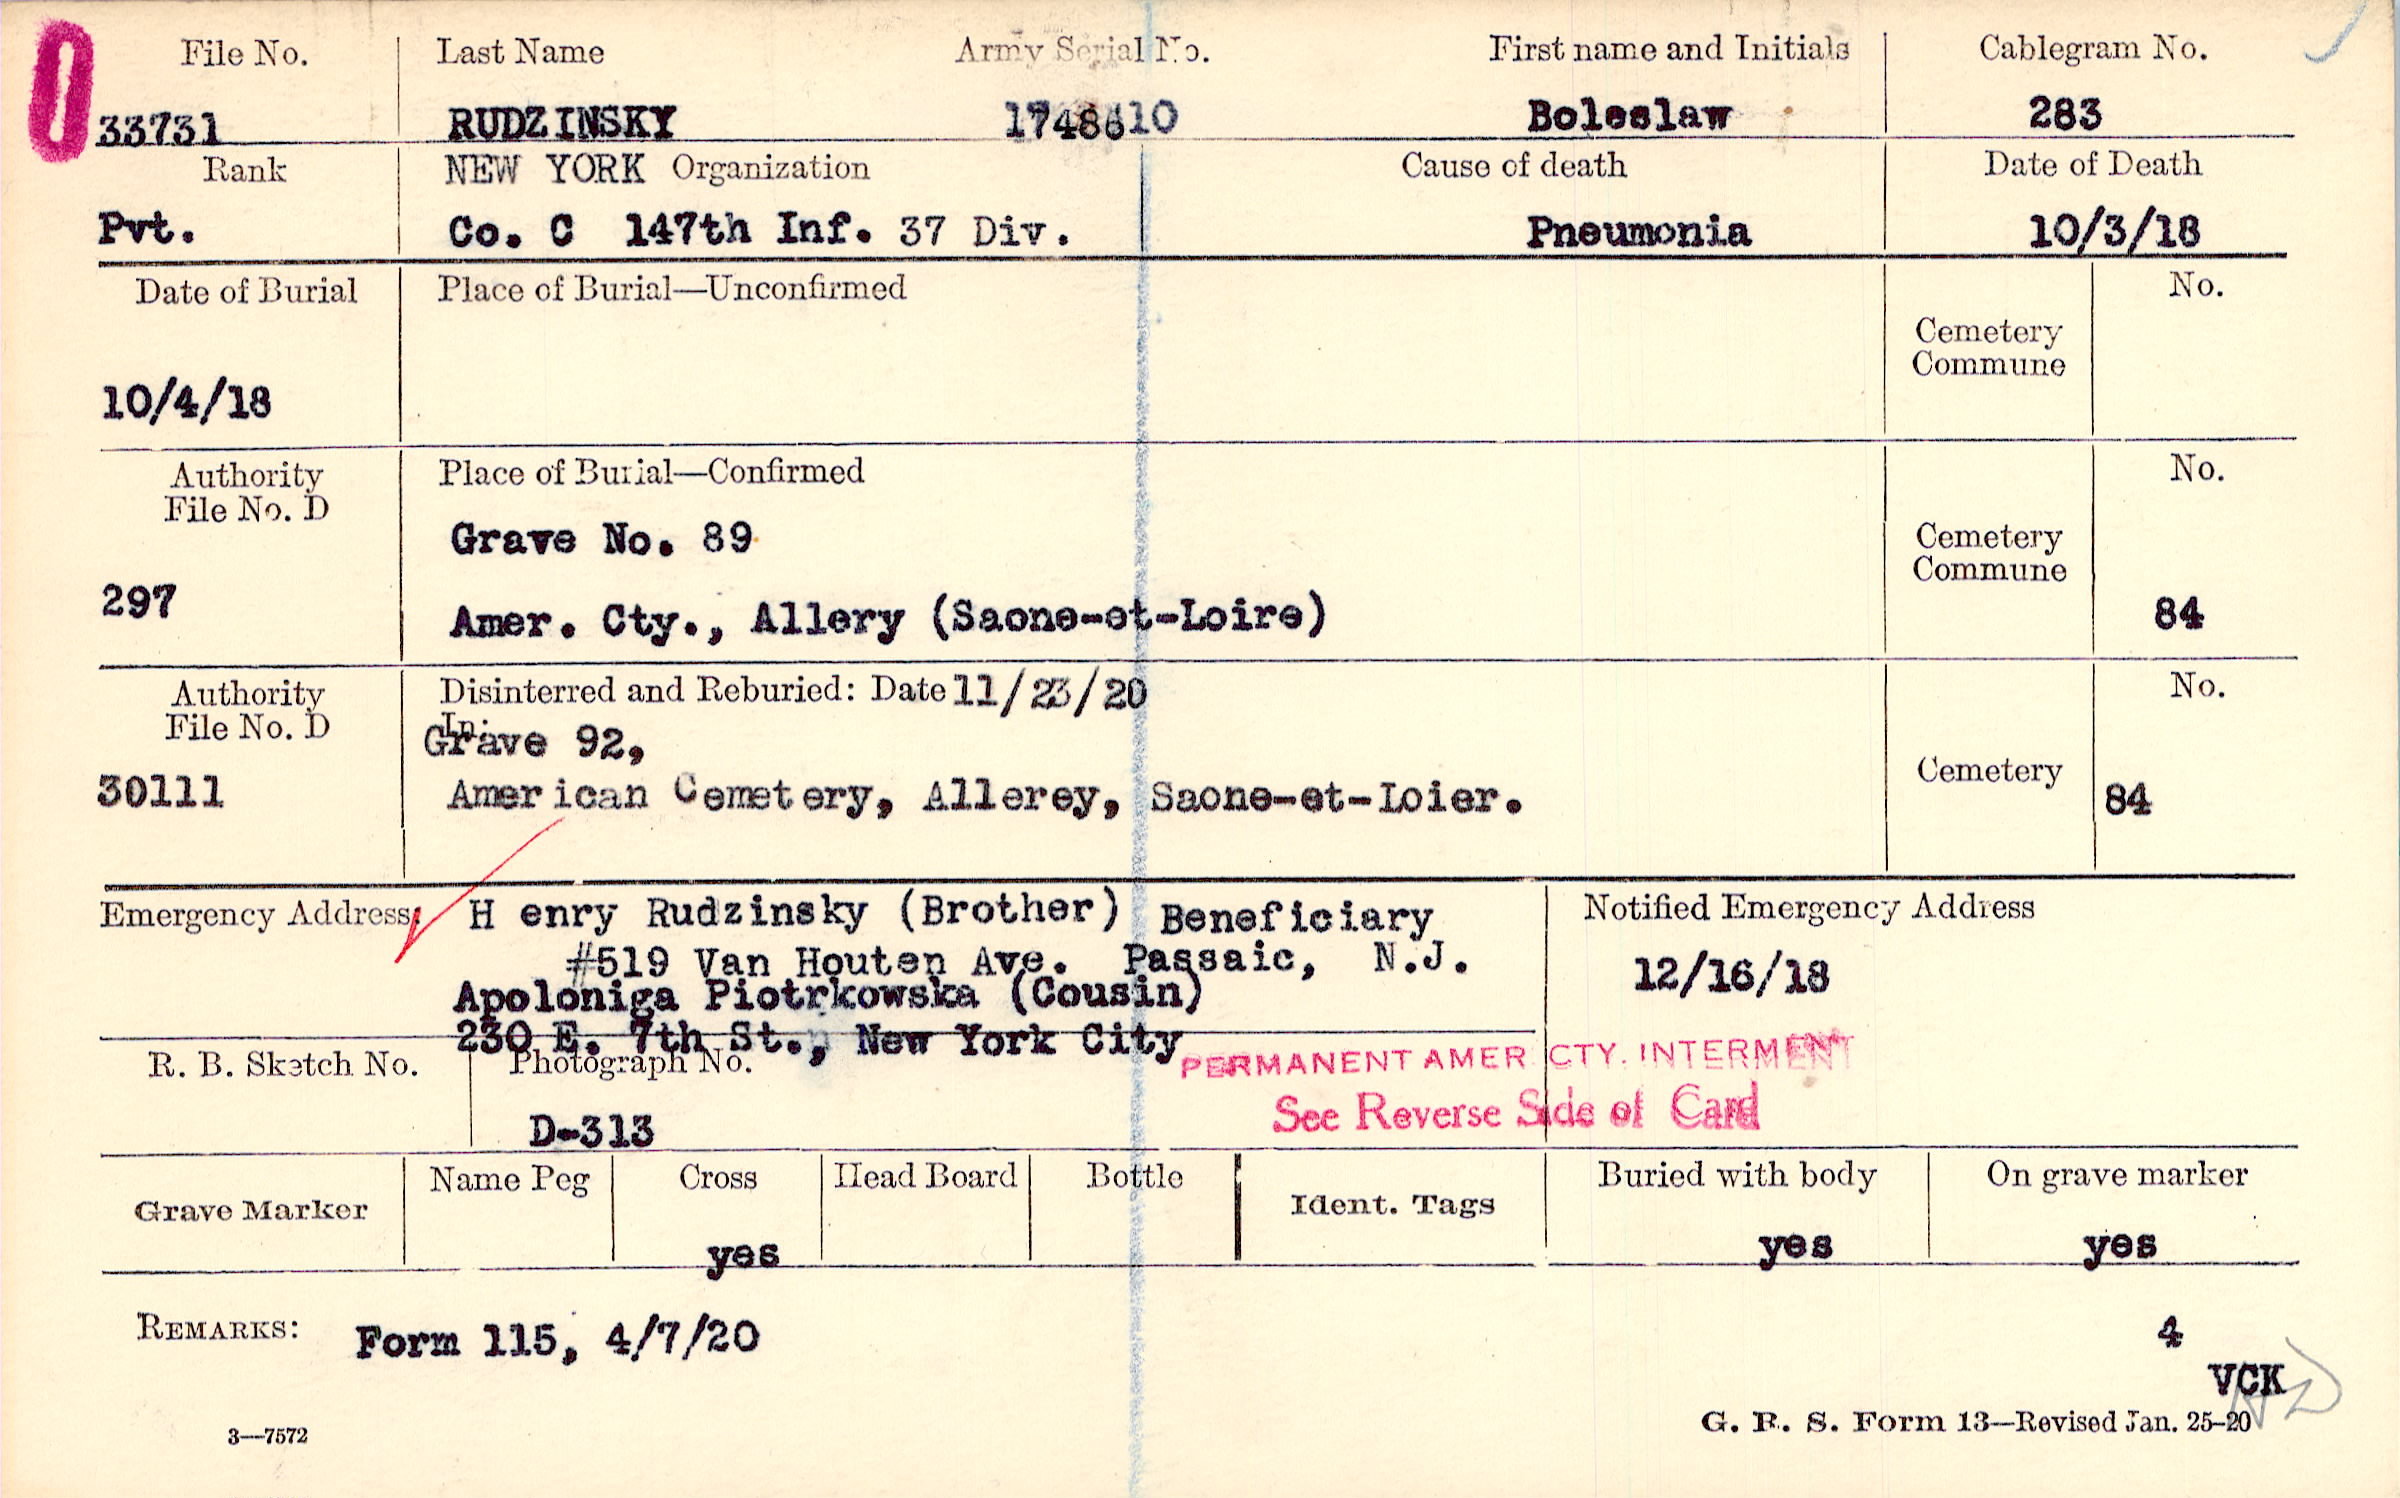 File No. Last Name Army Serial No. First name and Initials Cablegram No.
33731 RUDZINSKY 1748610 Boleslaw 283
Rank NEW YORK Organization Cause of death Date of Death
Pvt. Co. C 147th Inf. 37 Div. Pneumonia 10/3/18
Date of Burial Place of Burial—Unconfirmed No.
Cemetery
Commune
10/4/18
Authority Place of Burial—Confirmed No.
File No. D
Grave No. 89 Cemetery
Commune
297 Amer. Cty., Allery (Saone-et-Loire) 84
Authority Disinterred and Reburied: Date 11/23/20 No.
File No. D In:
Grave 92,
30111 American Cemetery, Allerey, Saone-et-Loier. Cemetery 84
Emergency Address: H enry Rudzinsky (Brother) Beneficiary Notified Emergency Address
#519 Van Houten Ave. Passaic, N.J. 12/16/18
Apoloniga Piotrkowska (Cousin)
230 E. 7th St., New York City
R. B. Sketch No. Photograph No. PERMANENT AMER CTY. INTERMENT
D-313 See Reverse Side of Card
Grave Marker Name Peg Cross Head Board Bottle Ident. Tags Buried with body On grave marker
yes yes yes
REMARKS: Form 115, 4/7/20 4
VCK
3—7572 G. R. S. Form 13—Revised Jan. 25-20